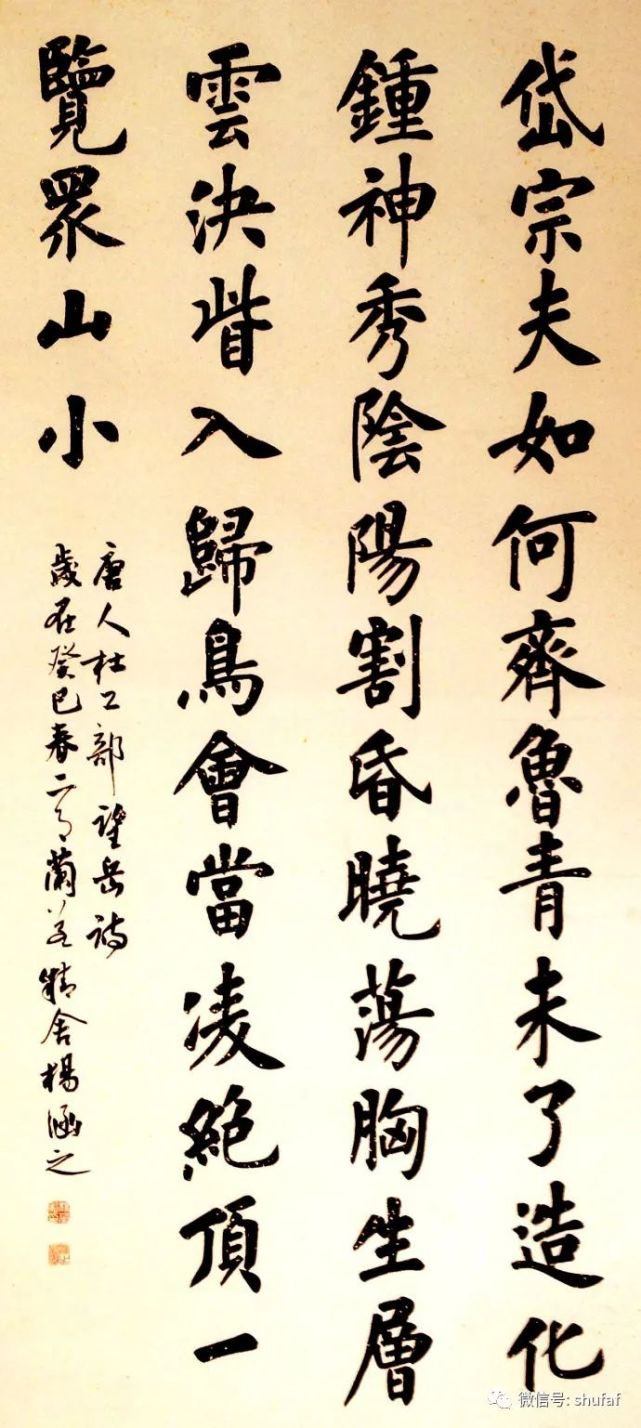 岱宗夫如何齊魯青未了造化
鍾神秀陰陽割昏曉蕩胸生層
雲決眥入歸鳥會當凌絕頂一
覽眾山小
唐人杜工部望岳詩
歲在癸巳春二月蘭若精舍楊涵之
微信号: shufaf